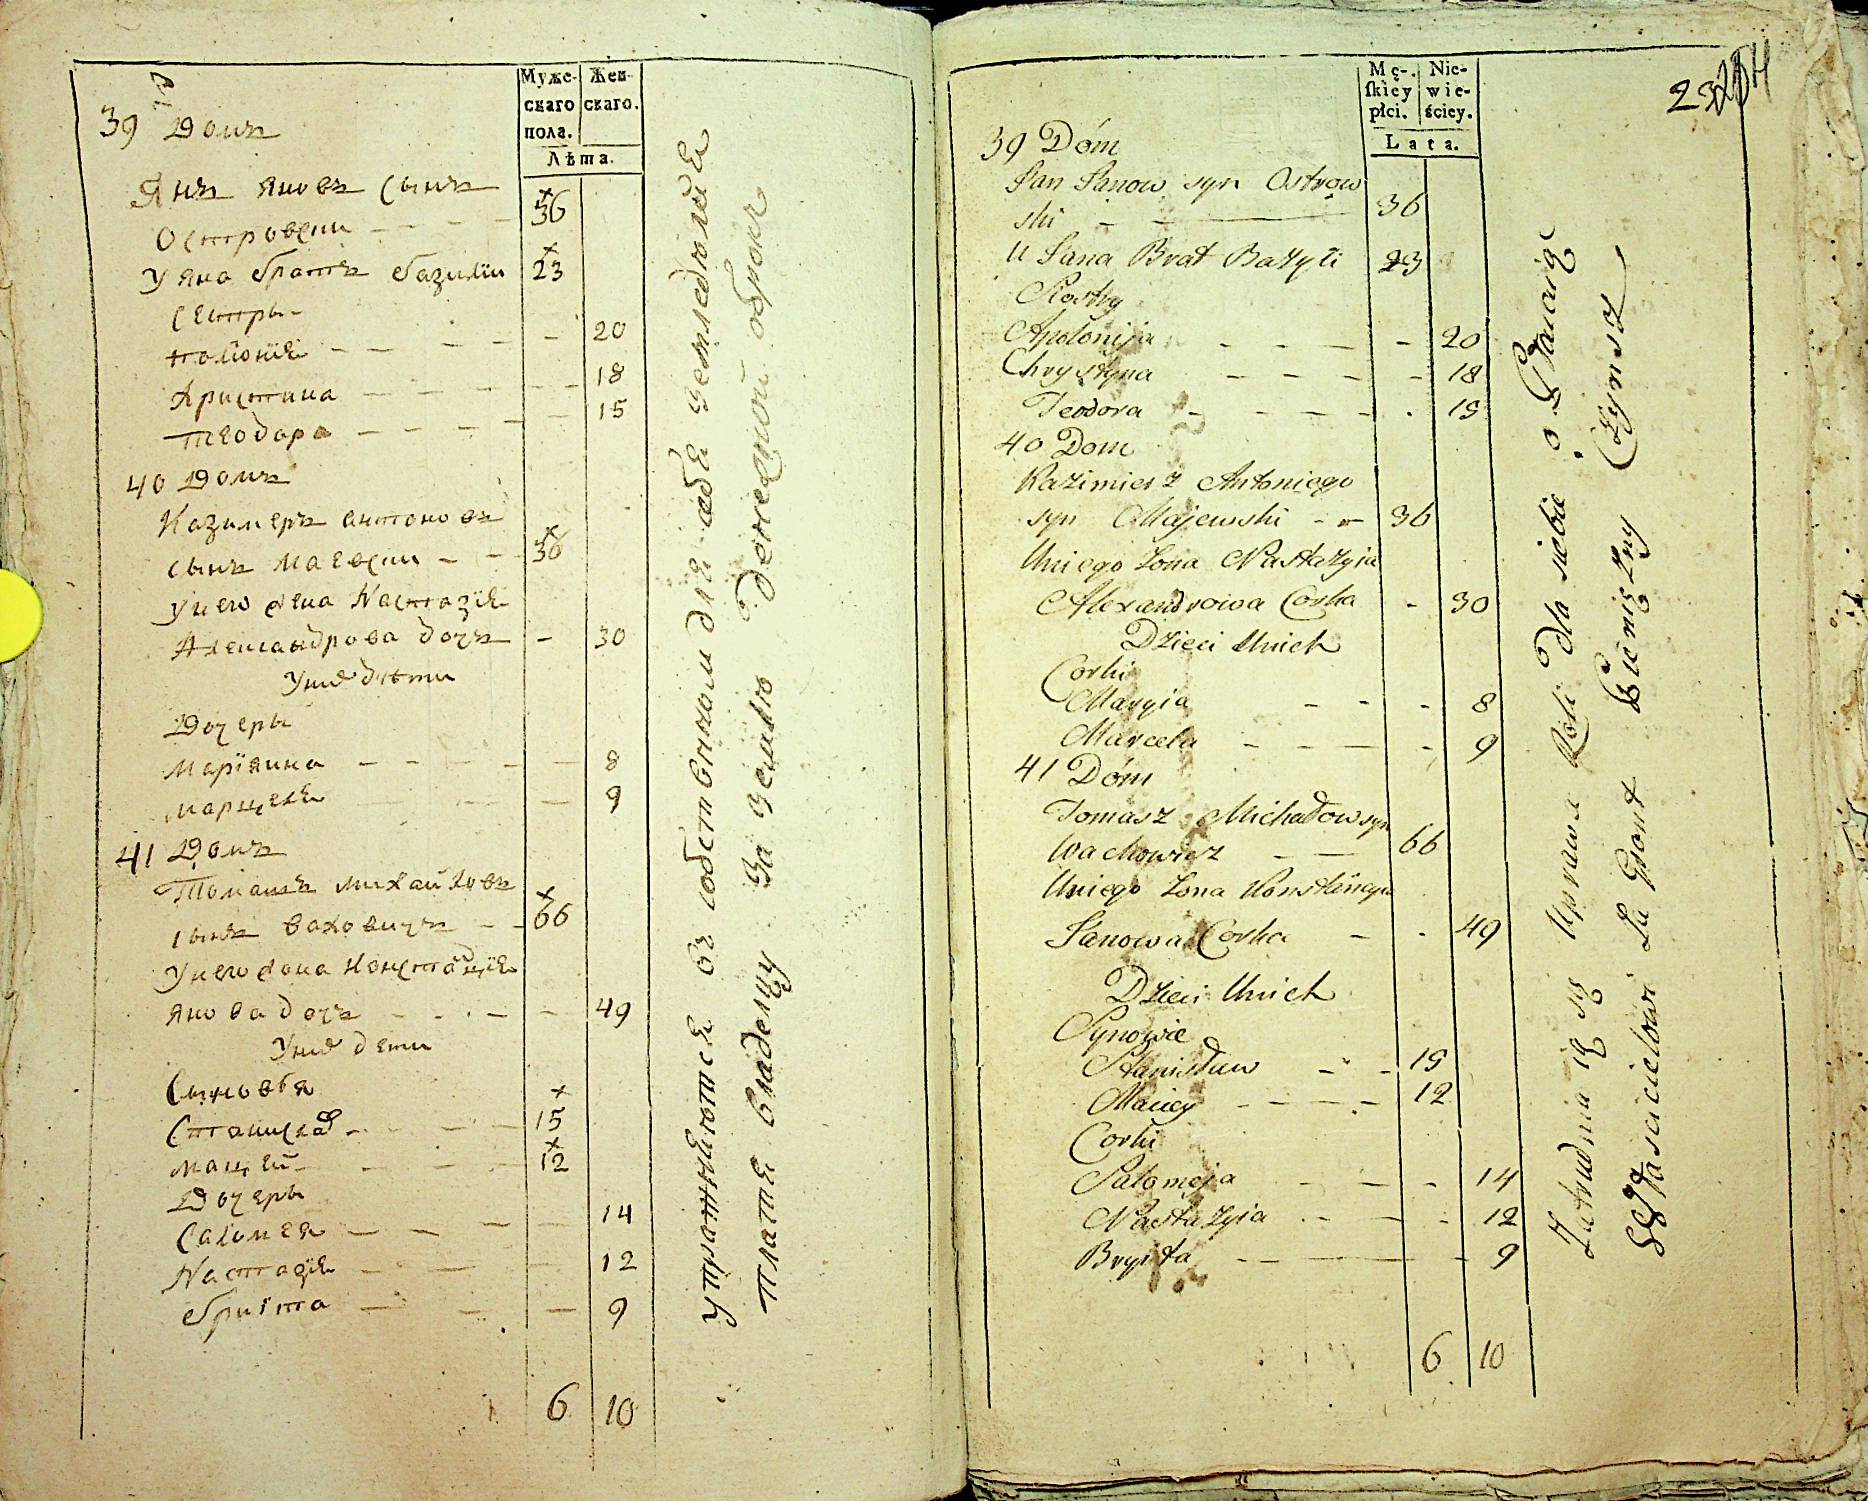 Муже-
скаго
пола.
Жен-
скаго.
Лѣта.
39 Домъ
Янъ Яновъ Сынъ
Островски 36
У Яна братъ базилiи 23
Сестры
полонiя 20
Христина 18
теодора 15
40 Домъ
Казимеръ антоновъ
сынъ Маевски 36
У него жена Настазiя
Александрова дочъ 30
У них дѣти
Дочеры
Марiянна 8
Марцеля 9
41 Домъ
Томашъ михайловъ
сынъ ваховичъ 66
У него жона Констанцiя
Янова дочъ 49
У них дети
Сыновья
Станислав 15
Мацей 12
Дочеры
Саломея 14
Настазiя 12
бригита 9
6 10
упражняются въ собственном для себя земледѣлiе
платя владелцу за землю денежной оброкъ
Mę-
skiey
płci.
Nie-
wie-
ściey.
Lata.
39 Dóm
Jan Janow syn Ostrow
ski 36
U Jana Brat Bazyli 23
Siostry
Apolonija 20
Chrystyna 18
Teodora 15
40 Dom
Kazimierz Antoniego
syn Majewski 36
Uniego Zona Nastazyia
Alexandrowa Corka 30
Dzieci Unich
Corki
Maryia 8
Marcela 9
41 Dóm
Tomasz Michałow syn
Wachowicz 66
Uniego Zona Konstancyia
Janowa Corka 49
Dzieci Unich
Synowie
Stanisław 15
Maciey 12
Corki
Salomeja 14
Nastazyia 12
Brygita 9
6 10
Zatrudnia ią się Uprawą Roli dla siebie
Włascicielowi za Gront Pieniężny Czynsz